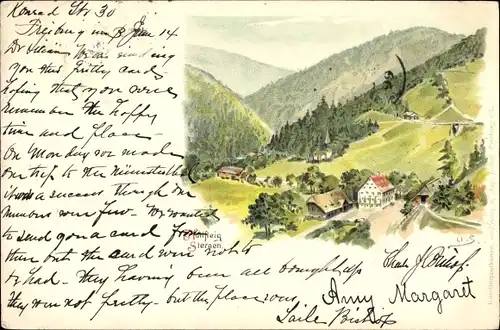 Konrad Str. 30
Freiburg im B June 14
Dr We're sending
you this pretty card
hoping that you will
remember the happy
time and place —
On Monday we made
our trip to the
it was a success though our
numbers were few. We wanted
to send you a card from
there but the card were not to
be had — they having been all bought up
they were not pretty — but the place was.
Höllsteig
Sternen.
Chas. J.
Amy Margaret
Bishop